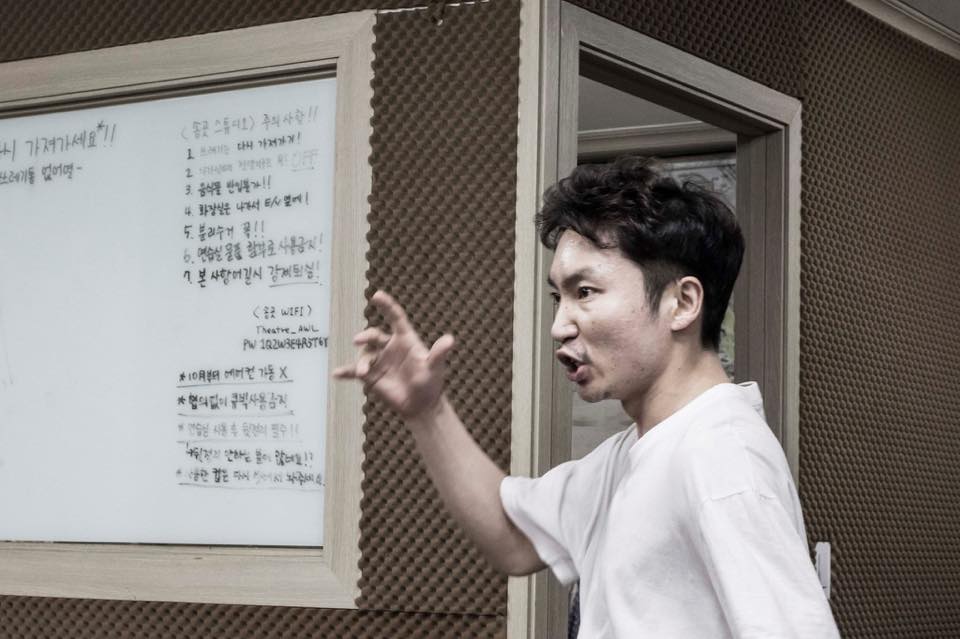 다시 가져가세요*!!
쓰레기통 없어염~
<송곳 스튜디오> 주의사항!!
1. 쓰레기는 다시 가져가기!
2. OFF
3. 음식물 반입불가!!
4. 화장실은 나가서 다시 옆에!
5. 분리수거 꼭!!
6. 연습실 물품 함부로 사용금지!
7. 본 사항 어길시 강제퇴실!
<송곳 WIFI>
Theatre_AWL
PW 1Q2W3E4R5T6Y
*10月부터 에어컨 가동 X
* 협의없이 큐빅사용금지
* 연습실 사용 후 뒷정리 필수!!
뒷정리 안하는 분이 많네요!?
컵은 다시